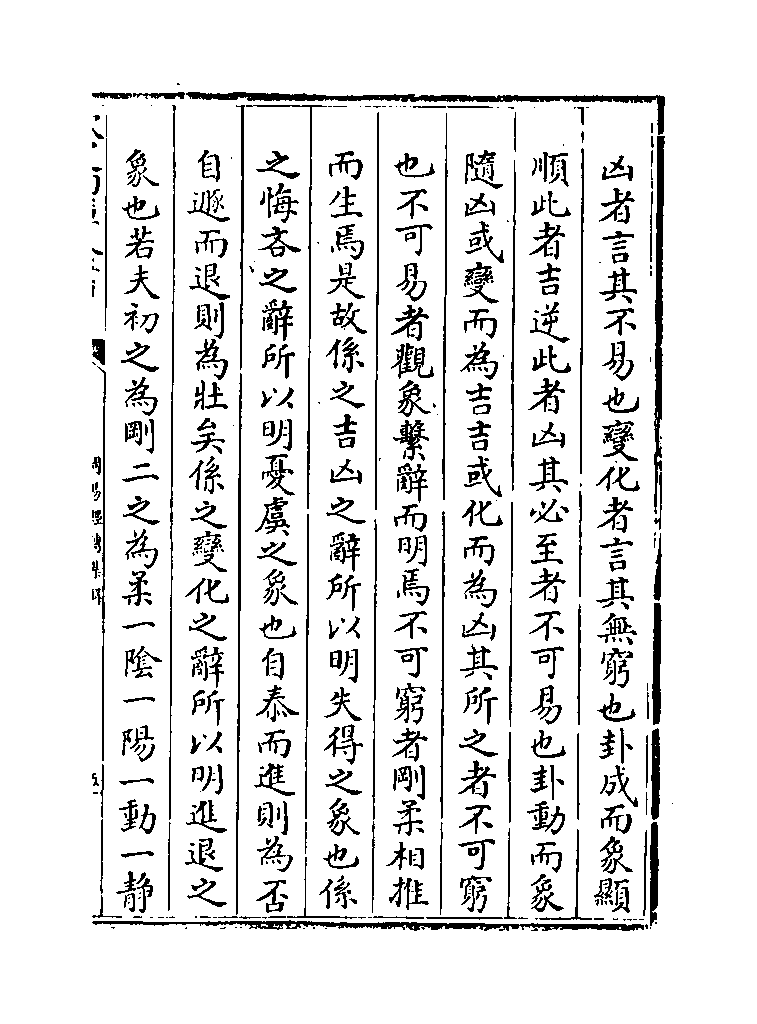 凶者言其不易也變化者言其無窮也卦成而象顯
順此者吉逆此者凶其必至者不可易也卦動而象
隨凶或變而為吉吉或化而為凶其所之者不可窮
也不可易者觀象繫辭而明焉不可窮者剛柔相推
而生焉是故係之吉凶之辭所以明失得之象也係
之悔吝之辭所以明憂虞之象也自泰而進則為否
自遯而退則為壯矣係之變化之辭所以明進退之
象也若夫初之為剛二之為柔一陰一陽一動一靜